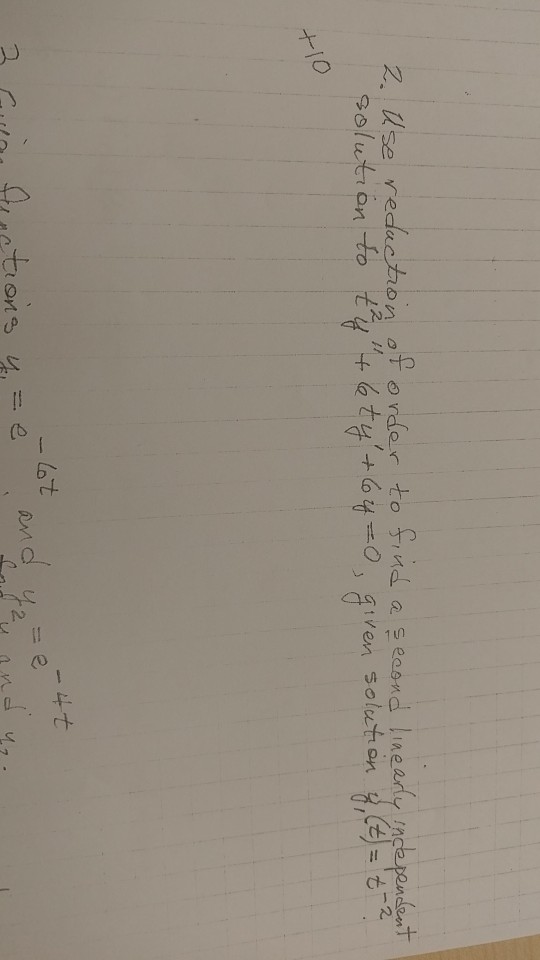 2. Use reduction of order to find a second linearly independent
solution to t²y" + 6ty' + 6y = 0, given solution y₁(t) = t⁻².
+10
3 Given functions y₁ = e^-6t and y₂ = e^-4t
and y₂.